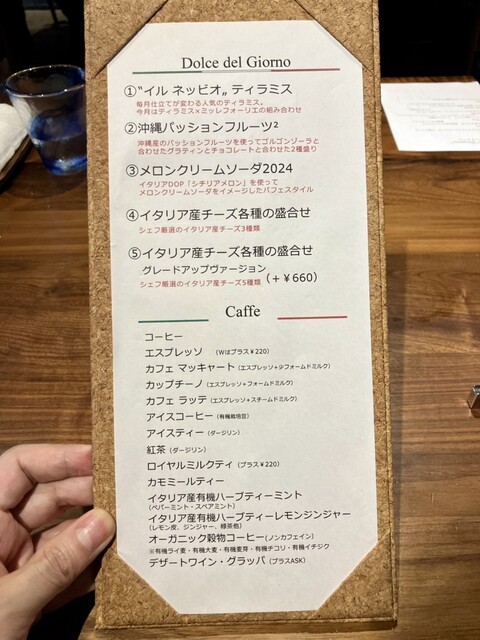 Dolce del Giorno
①"イル ネッビオ„ ティラミス
毎月仕立てが変わる人気のティラミス。
今月はティラミス×ミッレフォーリエの組み合わせ
②沖縄パッションフルーツ²
沖縄産のパッションフルーツを使ってゴルゴンゾーラと
合わせたグラティンとチョコレートと合わせた2種盛り
③メロンクリームソーダ2024
イタリアDOP「シチリアメロン」を使って
メロンクリームソーダをイメージしたパフェスタイル
④イタリア産チーズ各種の盛合せ
シェフ厳選のイタリア産チーズ3種類
⑤イタリア産チーズ各種の盛合せ
グレードアップヴァージョン
シェフ厳選のイタリア産チーズ5種類 (+¥660)
Caffe
コーヒー
エスプレッソ (Wはプラス¥220)
カフェ マッキャート (エスプレッソ+少フォームドミルク)
カップチーノ (エスプレッソ+フォームドミルク)
カフェ ラッテ (エスプレッソ+スチームドミルク)
アイスコーヒー (有機栽培豆)
アイスティー (ダージリン)
紅茶 (ダージリン)
ロイヤルミルクティ (プラス¥220)
カモミールティー
イタリア産有機ハーブティーミント
(ペパーミント・スペアミント)
イタリア産有機ハーブティーレモンジンジャー
(レモン皮、ジンジャー、緑茶他)
オーガニック穀物コーヒー(ノンカフェイン)
※有機ライ麦・有機大麦・有機麦芽・有機チコリ・有機イチジク
デザートワイン・グラッパ (プラスASK)